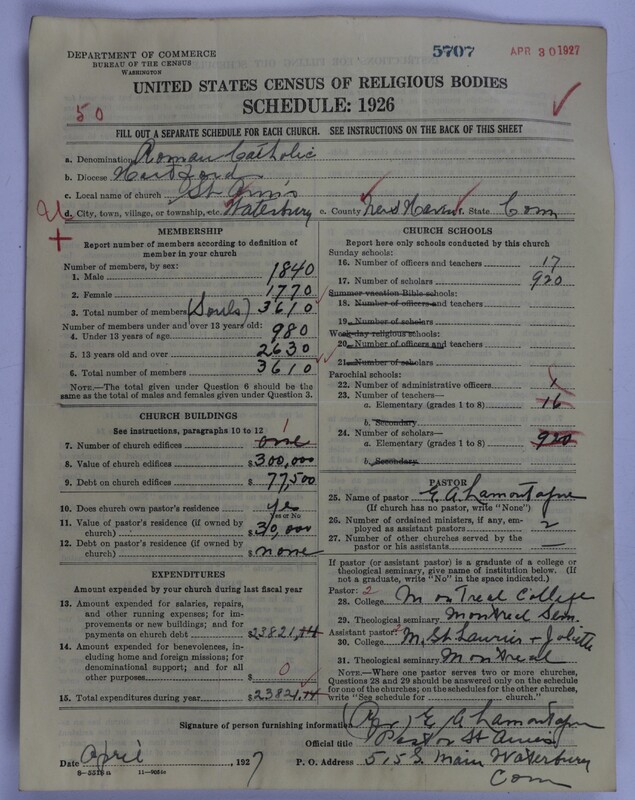 DEPARTMENT OF COMMERCE
BUREAU OF THE CENSUS
WASHINGTON
5707
APR 30 1927
UNITED STATES CENSUS OF RELIGIOUS BODIES
SCHEDULE: 1926
50
FILL OUT A SEPARATE SCHEDULE FOR EACH CHURCH. SEE INSTRUCTIONS ON THE BACK OF THIS SHEET
a. Denomination Roman Catholic
b. Diocese Hartford
c. Local name of church St Ann's
d. City, town, village, or township, etc. Waterbury e. County New Haven f. State Conn
MEMBERSHIP
Report number of members according to definition of
member in your church
Number of members, by sex:
1. Male 1840
2. Female 1770
3. Total number of members (Souls) 3610
Number of members under and over 13 years old:
4. Under 13 years of age 980
5. 13 years old and over 2630
6. Total number of members 3610
NOTE.—The total given under Question 6 should be the
same as the total of males and females given under Question 3.
CHURCH BUILDINGS
See instructions, paragraphs 10 to 12
7. Number of church edifices one 1
8. Value of church edifices $300,000
9. Debt on church edifices $77,500
10. Does church own pastor's residence? yes
Yes or No
11. Value of pastor's residence (if owned by
church) $30,000
12. Debt on pastor's residence (if owned by
church) $none
EXPENDITURES
Amount expended by your church during last fiscal year
13. Amount expended for salaries, repairs,
and other running expenses; for im-
provements or new buildings; and for
payments on church debt $23821,44
14. Amount expended for benevolences,
including home and foreign missions; for
denominational support; and for all
other purposes $ 0
15. Total expenditures during year $23821,44
CHURCH SCHOOLS
Report here only schools conducted by this church
Sunday schools:
16. Number of officers and teachers 17
17. Number of scholars 920
Summer vacation Bible schools:
18. Number of officers and teachers
19. Number of scholars
Week-day religious schools:
20. Number of officers and teachers
21. Number of scholars
Parochial schools:
22. Number of administrative officers 1
23. Number of teachers—
a. Elementary (grades 1 to 8) 16
b. Secondary
24. Number of scholars—
a. Elementary (grades 1 to 8) 920
b. Secondary
PASTOR
25. Name of pastor E. A. Lamontagne
(If church has no pastor, write "None")
26. Number of ordained ministers, if any, em-
ployed as assistant pastors 2
27. Number of other churches served by the
pastor or his assistants —
If pastor (or assistant pastor) is a graduate of a college or
theological seminary, give name of institution below. (If
not a graduate, write "No" in the space indicated.)
Pastor: 2
28. College Montreal College
29. Theological seminary Montreal Sem.
Assistant pastor: 2
30. College M. St Laurier + Joliette
31. Theological seminary Montreal
NOTE.—Where one pastor serves two or more churches,
Questions 28 and 29 should be answered only on the schedule
for one of the churches; on the schedules for the other churches,
write "See schedule for church."
Signature of person furnishing information (Rev) E. A Lamontagne
Official title Pastor St Ann's
Date April , 1927 P. O. Address 515 S. Main Waterbury
Conn
8—5518 a